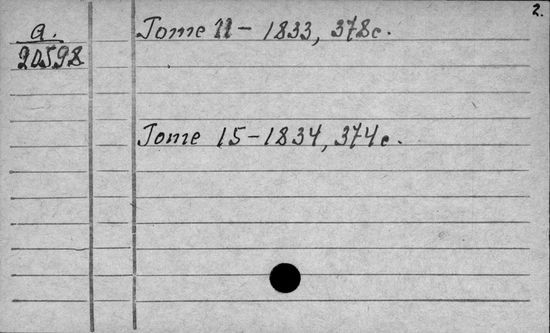 2.
a.
20598
Tome 11 - 1833, 378 c.
Tome 15 - 1834, 374 c.